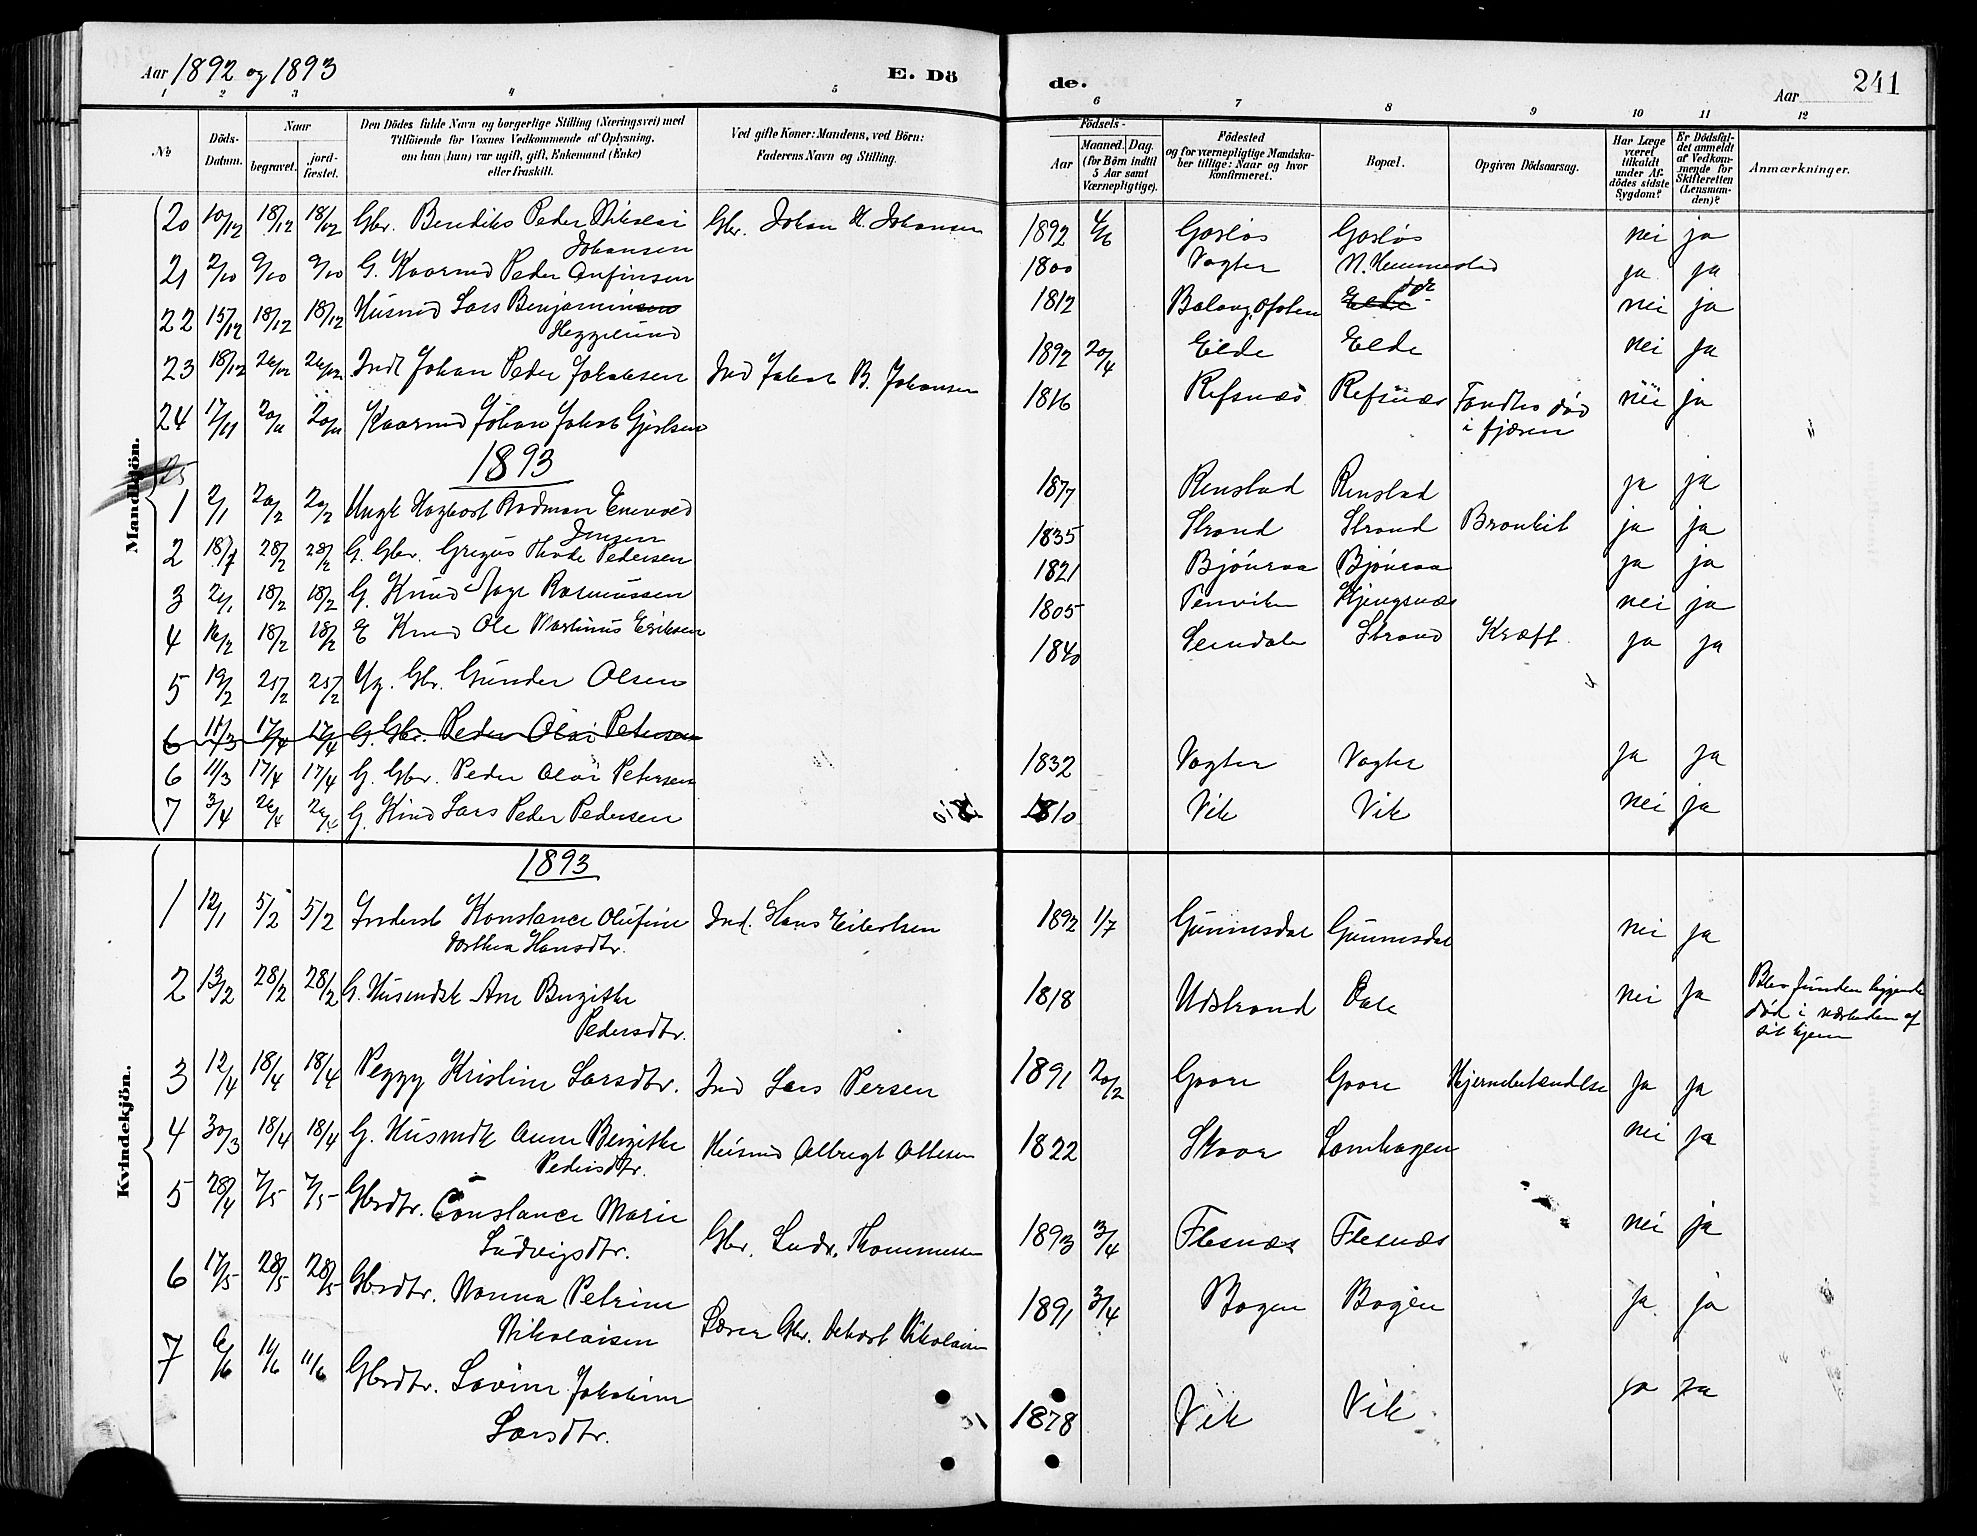 Aar 1892 og 1893
E. Dö
de.
Aar
241
1 2 3 4 5 6 7 8 9 10 11 12
No
Döds-
Datum.
Naar
begravet.
jord-
fæstet.
Den Dödes fulde Navn og borgerlige Stilling (Næringsvei) med
Tilföiende for Voxnes Vedkommende af Oplysning,
om han (hun) var ugift, gift, Enkemand (Enke)
eller fraskilt.
Ved gifte Koner: Mandens, ved Börn:
Faderens Navn og Stilling.
Födsels-
Aar
Maaned. Dag.
(for Börn indtil
5 Aar samt
Værnepligtige).
Födested
og for værnepligtige Mandska-
ber tillige: Naar og hvor
konfirmeret.
Bopæl.
Opgiven Dödsaarsag.
Har Læge
været
tilkaldt
under Af-
dödes sidste
Sygdom?
Er Dödsfal-
det anmeldt
af Vedkom-
mende for
Skifteretten
(Lensman-
den)?
Anmærkninger.
Mandkjön.
20 10/12 18/12 18/12 Gbr. Bendiks Peder Nikolai Johansen Gbr. Johan H. Johansen 1892 4/6 Gosløs Gosløs nei ja
21 2/10 9/10 9/10 G. Kaarmd Peder Anfinsen 1800 Vogter N. Hemmestad ja ja
22 15/12 18/12 18/12 Husmd Lars Benjaminsen Heggelund 1812 Balang. Ofoten Elde nei ja
23 18/12 26/12 26/12 Indt Johan Peder Jakobsen Ind Jakob B. Johansen 1892 20/4 Elde Elde nei ja
24 17/11 20/11 20/11 Kaarmd Johan Jakob Gjertsen 1816 Refsnæs Refsnæs Fandtes død i fjæren nei ja
25
1893
1 2/1 20/2 20/2 Ungk Hagbart Rodman Enevold Jensen 1877 Renstad Renstad ja ja
2 18/1 28/2 28/2 G. Gbr. Gregus Thode Pedersen 1835 Strand Strand Bronkit ja ja
3 21/1 18/2 18/2 G. Kmd Aage Rasmussen 1821 Bjønraa Bjønraa ja ja
4 16/2 18/2 18/2 E Kmd Ole Martinus Eriksen 1805 Tenviken Kjengsnæs nei ja
5 19/2 25/2 25/2 Ug. Gbr. Gunder Olsen 1840 Leindale Strand Kræft ja ja
6 11/3 17/4 17/4 G. Gbr. Peder Olai Petersen
6 11/3 17/4 17/4 G. Gbr. Peder Olai Petersen 1832 Vogter Vogter ja ja
7 3/4 26/4 26/4 G. Kmd Lars Peder Pedersen 1810 Vik Vik nei ja
Kvindekjön.
1893
1 12/1 5/2 5/2 Inderst Konstance Olufine Dorthea Hansdtr. Ind. Hans Eilertsen 1892 1/7 Gunnesdal Gunnesdal nei ja
2 13/2 28/2 28/2 G. Husmdsk Ane Birgithe Pedersdtr. 1818 Udstrand Dale nei ja Blev funden liggende død i nærheden af sit hjem
3 12/4 18/4 18/4 Peggy Kristine Larsdtr. Ind Lars Persen 1891 20/2 Goore Goore Hjernebetændelse ja ja
4 30/3 18/4 18/4 G. Husmdk Anne Birgithe Pedersdtr. Husmd Albregt Ottesen 1822 Skaar Lamhagen nei ja
5 28/4 7/5 7/5 Gbrdtr. Constance Marie Ludvigsdtr. Gbr. Ludv. Thommesen 1893 3/4 Flesnæs Flesnæs nei ja
6 17/5 28/5 28/5 Gbrdtr. Nanna Petrine Nikolaisen Lærer Gbr. Nikolaisen 1891 3/4 Bogen Bogen ja ja
7 6/6 11/6 11/6 Gbrdtr. Lovine Jakobine Larsdtr. 1878 Vik Vik ja ja